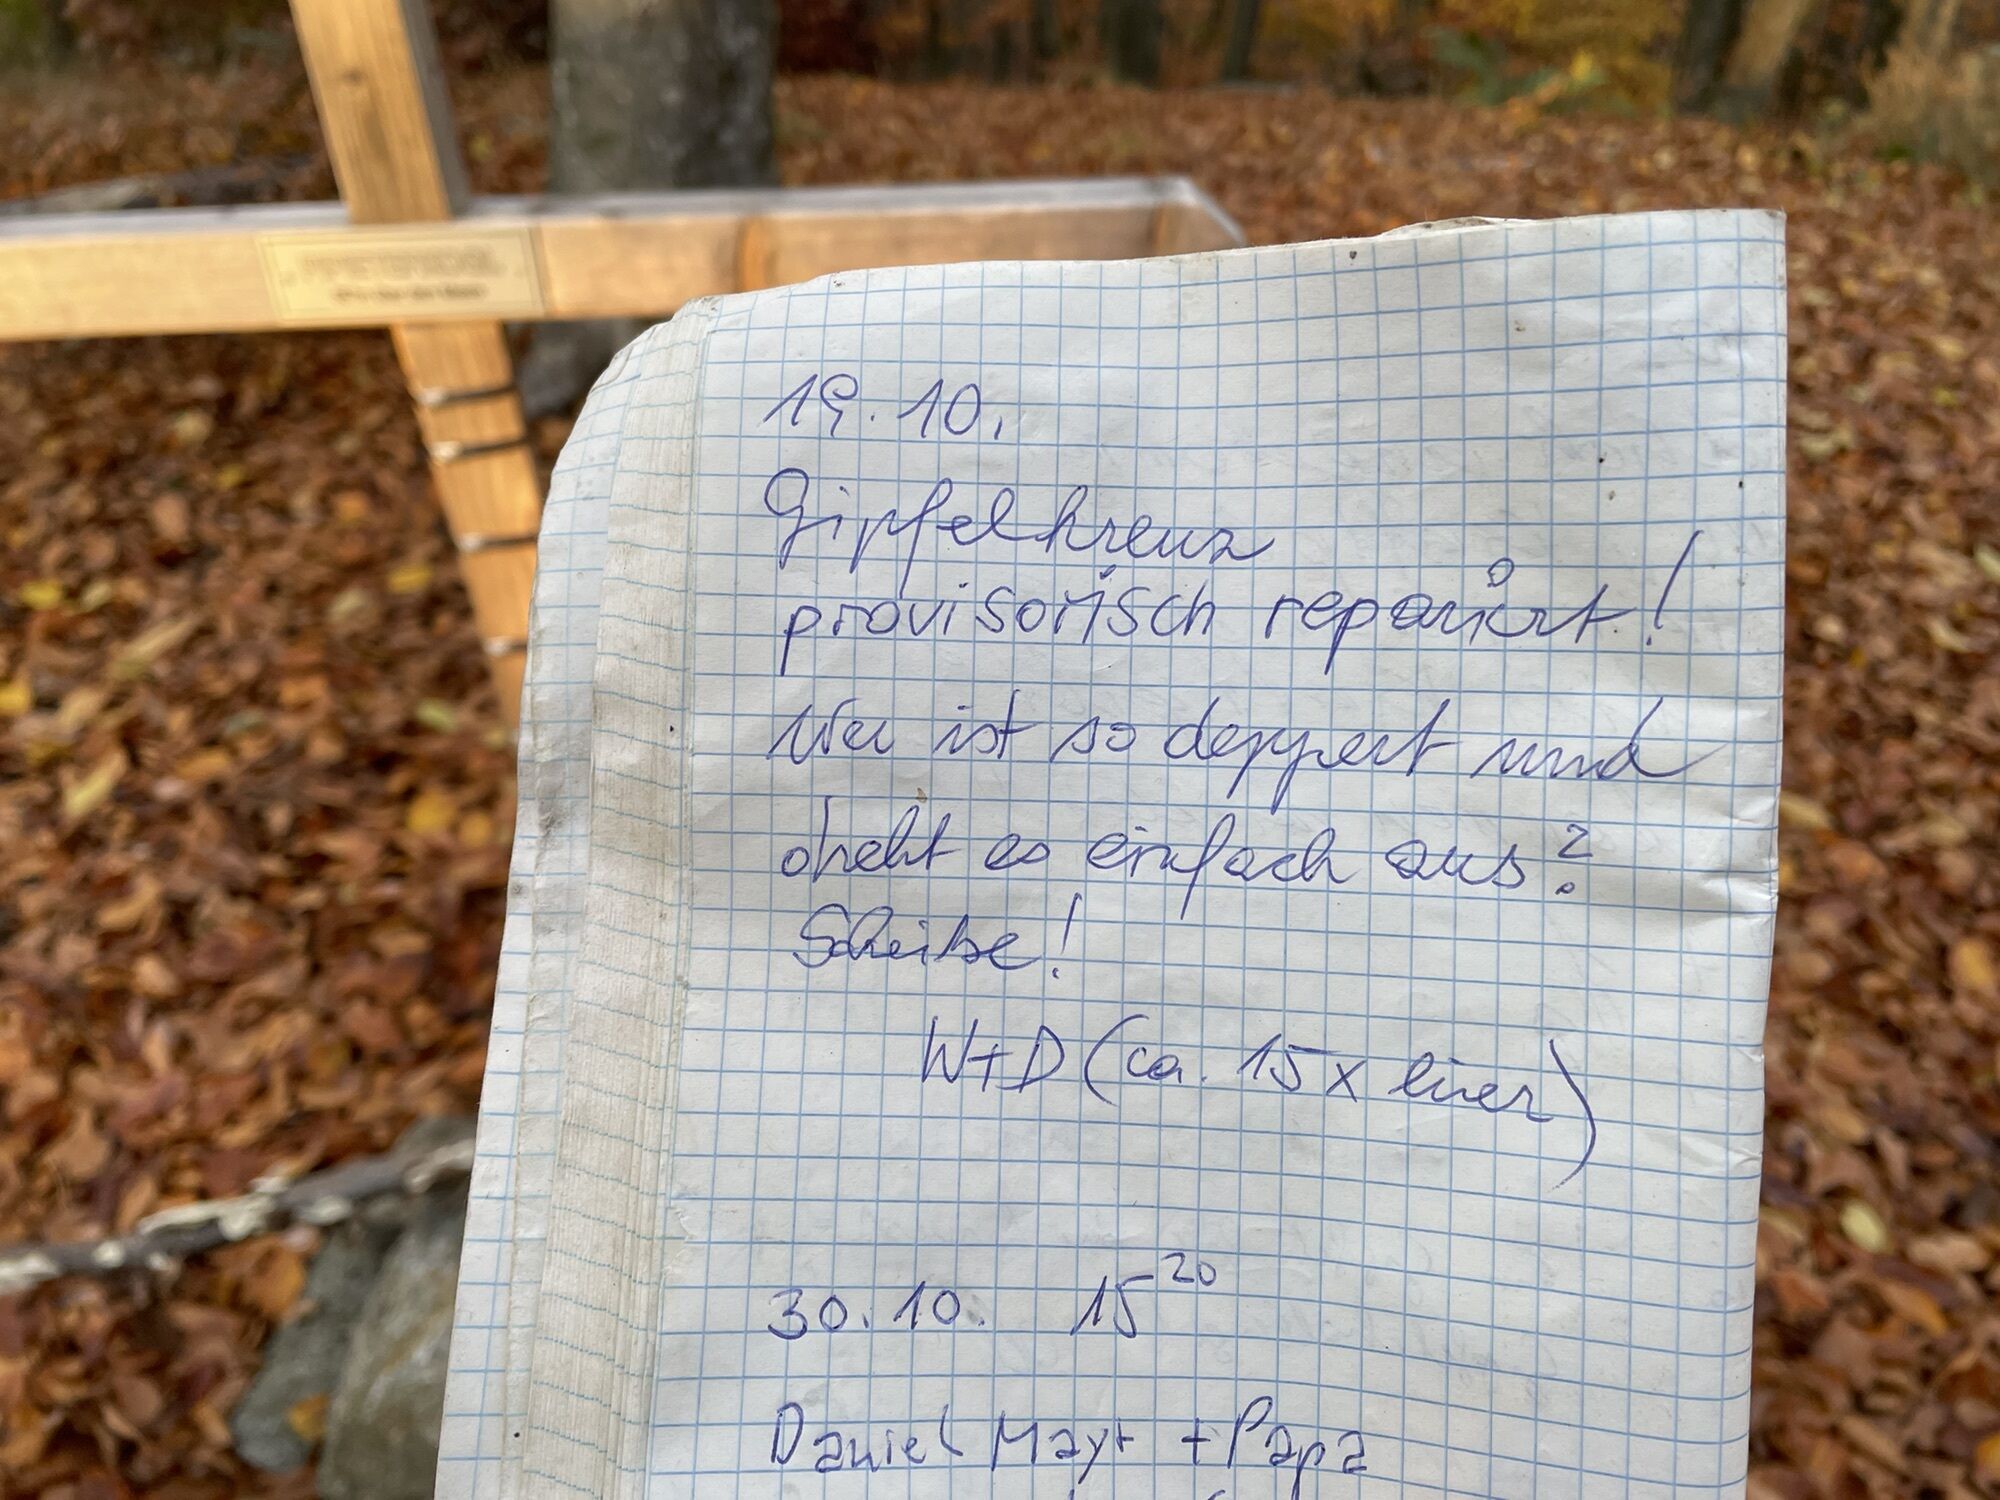 19.10.
Gipfelkreuz
provisorisch repariert!
Wer ist so deppert und
dreht es einfach aus?
Scheiße!
W+D (ca. 15x hier)
30.10. 15²⁰
Daniel Mayr + Papa